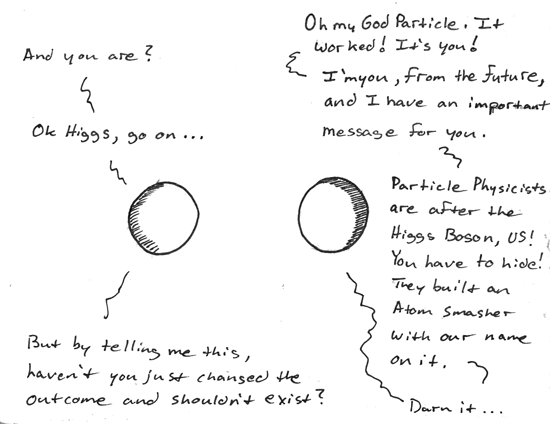 Oh my God Particle. It
worked! It's you!
And you are?
I'm you, from the future,
and I have an important
message for you.
Ok Higgs, go on...
Particle Physicists
are after the
Higgs Boson, US!
You have to hide!
They built an
Atom Smasher
with our name
on it.
But by telling me this,
haven't you just changed the
outcome and shouldn't exist?
Darn it...